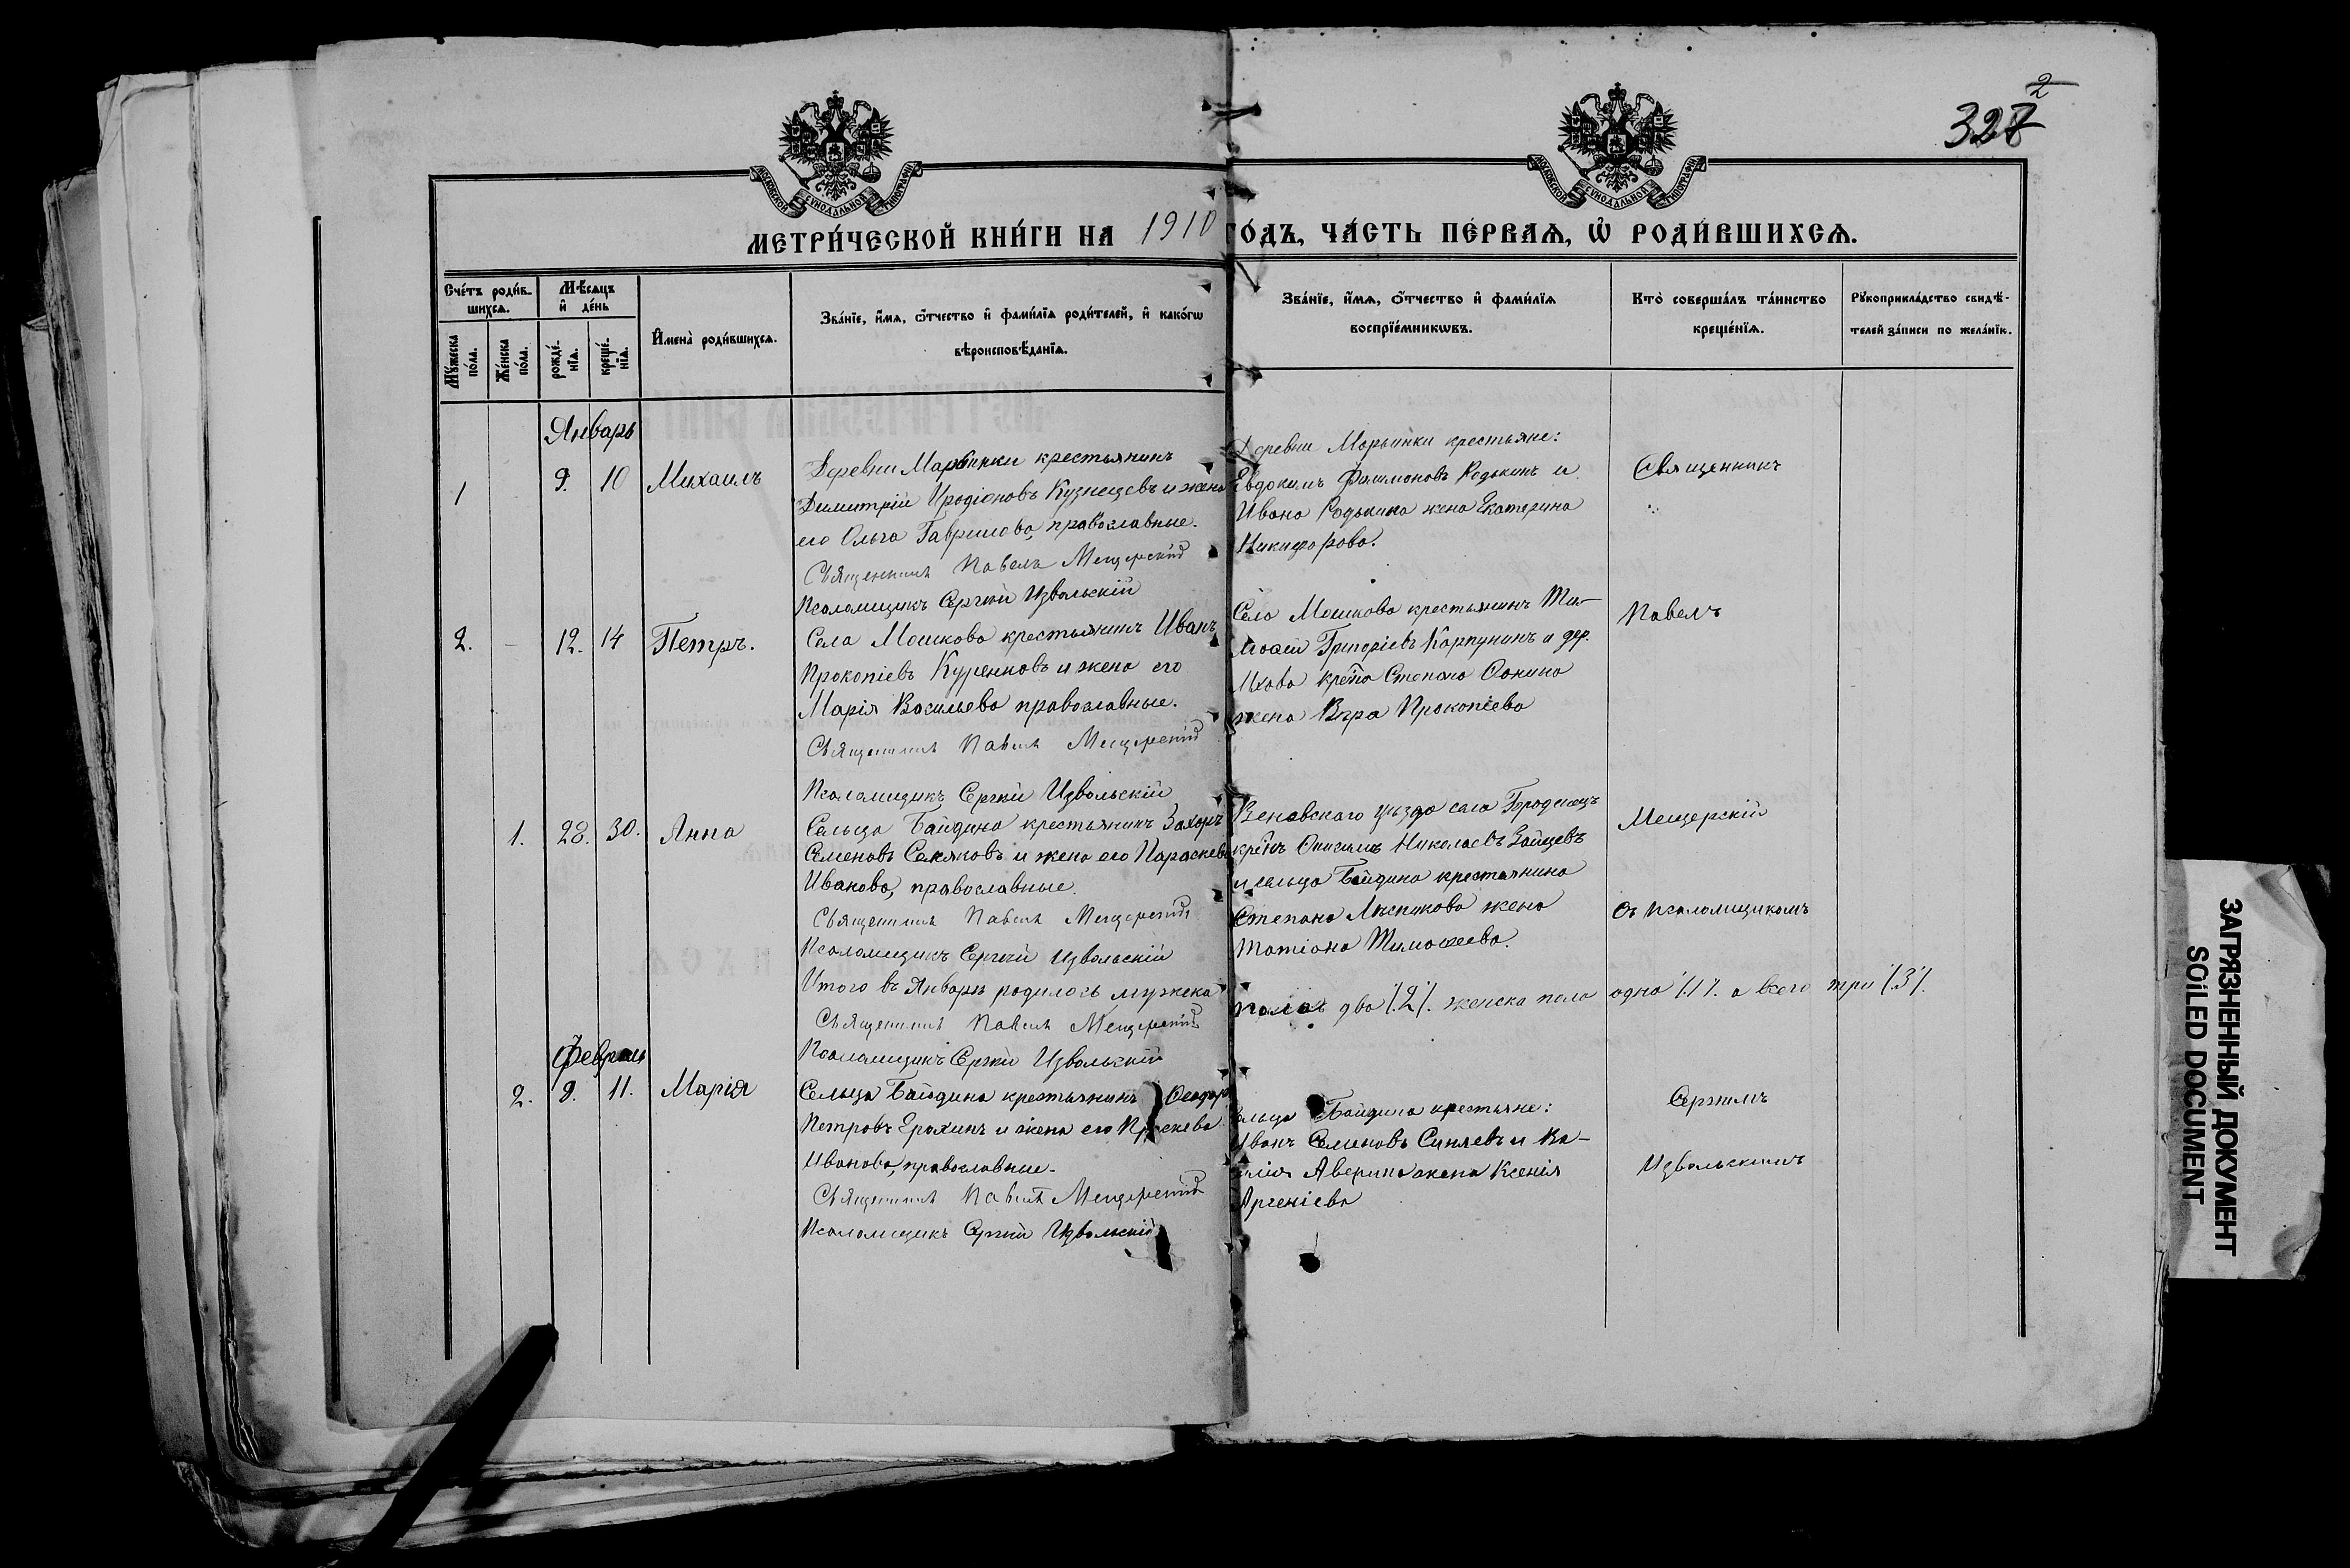 2
327
МОСКОВСКОЙ СѴНОДАЛЬНОЙ ТИПОГРАФІИ
МОСКОВСКОЙ СѴНОДАЛЬНОЙ ТИПОГРАФІИ
МЕТРИ́ЧЕСКОЙ КНИ́ГИ НА 1910 ГОДЪ, ЧА́СТЬ ПЕ́РВАѦ, Ѡ҆ РОДИ́ВШИХСѦ.
Сче́тъ роди́в-
шихсѧ.
Мꙋ́жеска по́ла.
Же́нска по́ла.
Мѣ́сѧцъ
и҆ де́нь
рожде́-нїѧ.
креще́-нїѧ.
И҆мена̀ роди́вшихсѧ.
Зва́нїе, и҆́мѧ, ѻ҆́тчество и҆ фами́лїѧ роди́телей, и҆ како́гѡ
вѣроисповѣ́данїѧ.
Зва́нїе, и҆́мѧ, ѻ҆́тчество и҆ фами́лїѧ
воспрїе́мникѡвъ.
Кто̀ соверша́лъ та́инство
креще́нїѧ.
Рꙋкоприкла́дство свидѣ́-
телей за́писи по жела́нїю.
Январь
1 9. 10 Михаилъ
Деревни Марьинки крестьянинъ
Димитрій Иродіоновъ Кузнецовъ и жена
его Ольга Гаврилова, православные.
Священникъ Павелъ Мещерскій
Псаломщикъ Сергій Извольскій
Деревни Марьинки крестьяне:
Евдокимъ Филимоновъ Родькинъ и
Ивана Родькина жена Екатерина
Никифорова.
Священникъ
2. - 12. 14 Петръ.
Села Мошкова крестьянинъ Иванъ
Прокопіевъ Куренковъ и жена его
Марія Васильева православные.
Священникъ Павелъ Мещерскій
Псаломщикъ Сергій Извольскій
Села Мошкова крестьянинъ Ти-
моѳей Григоріевъ Карпунинъ и дер.
крест. Степана
жена Вѣра Прокопіева
Павелъ
1. 28. 30. Анна
Сельца Байдина крестьянинъ Захаръ
Семеновъ и жена его Параскева
Иванова, православные.
Священникъ Павелъ Мещерскій
Псаломщикъ Сергій Извольскій
Веневскаго уѣзда села Городенецъ
крест. Николаевъ Зайцевъ
и сельца Байдина крестьянина
Степана жена
Татіана Тимоѳеева.
Мещерскій
съ псаломщикомъ
Итого въ Январѣ родилось мужеска
пола два /.2/. женска пола одна /.1/. а всего три /.3/.
Священникъ Павелъ Мещерскій
Псаломщикъ Сергій Извольскій
Февраль
2. 9. 11. Марія
Сельца Байдина крестьянинъ Ѳеодоръ
Петровъ Ерохинъ и жена его Праскева
Иванова, православные.
Священникъ Павелъ Мещерскій
Псаломщикъ Сергій Извольскій
Сельца Байдина крестьяне:
Иванъ Семеновъ Синяевъ и Ва-
силія Аверина жена Ксенія
Арсеніева
Сергіемъ
Извольскимъ
ЗАГРЯЗНЕННЫЙ ДОКУМЕНТ
SOILED DOCUMENT